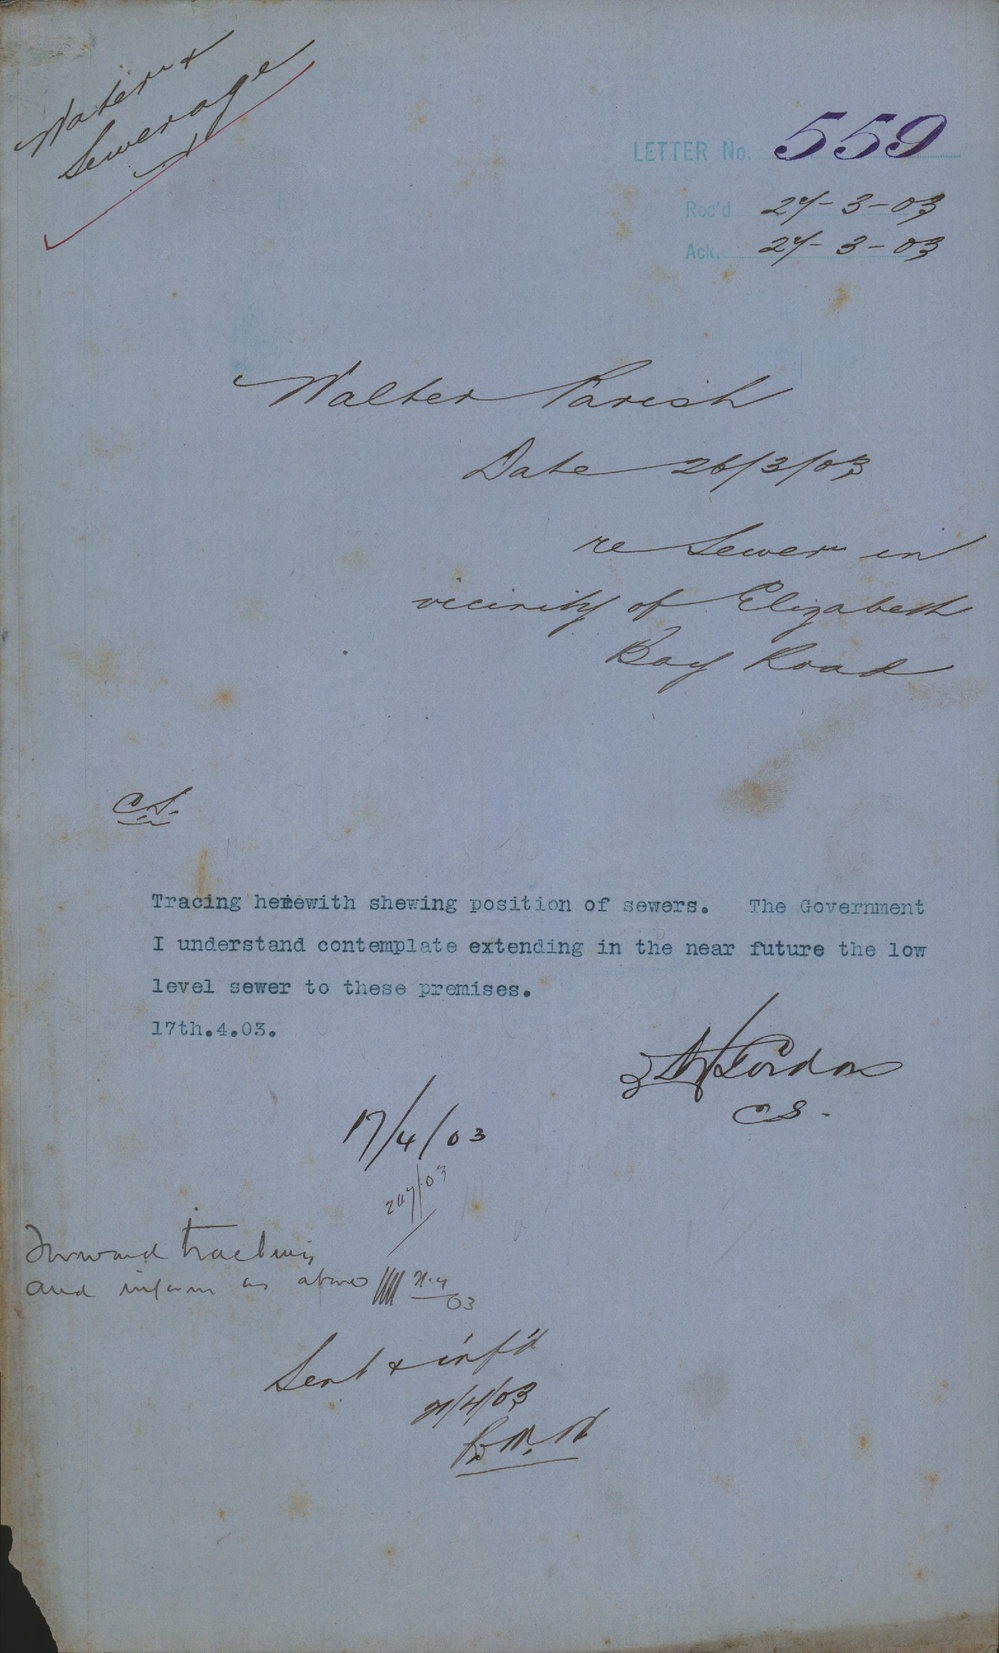 Water &
Sewerage
LETTER No. 559
Rec'd 27-3-03
Ack. 27-3-03
Walter Parish
Date 26/3/03
re Sewer in
vicinity of Elizabeth
Bay Road
C.S.
Tracing herewith shewing position of sewers. The Government
I understand contemplate extending in the near future the low
level sewer to these premises.
17th.4.03.
Gordon
C S.
17/4/03
Forward tracing
and inform as above
03
Sent & inf'd
21/4/03